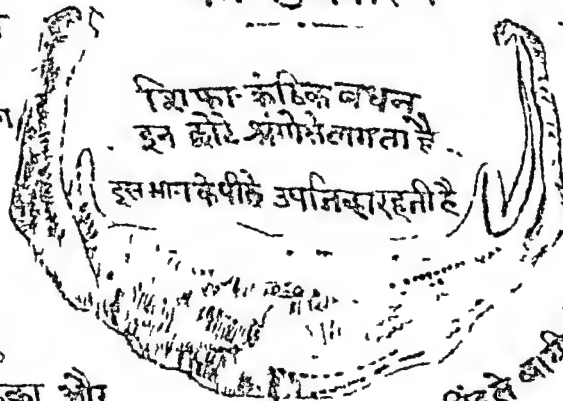 शिफा-कंठिक बंधन
इन छोटे श्रृंगोसे लगता है
इस भाग के पीछे उपजिव्हा रहती है
और